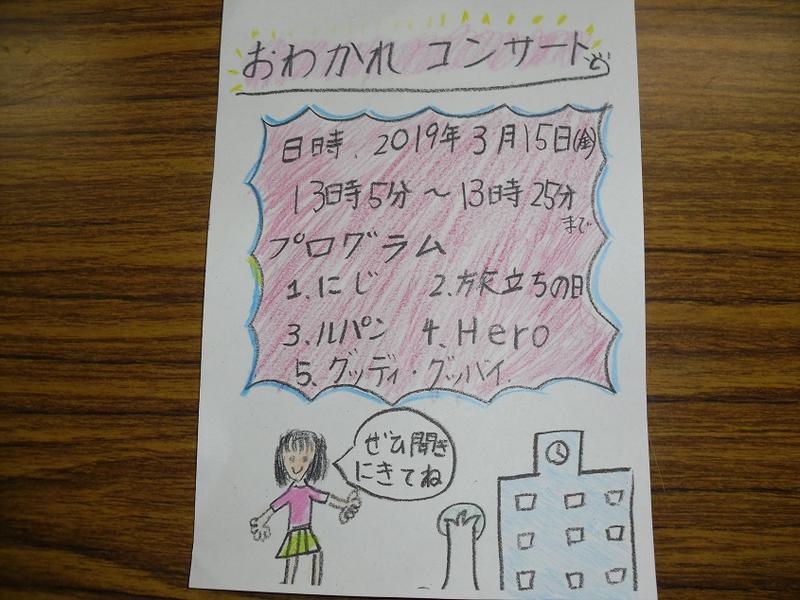 おわかれ コンサート
日時. 2019年 3月15日(金)
13時5分 ~ 13時25分
まで
プログラム
1. にじ 2. 旅立ちの日
3. ルパン 4. Hero
5. グッディ・グッバイ
ぜひ聞き
にきてね